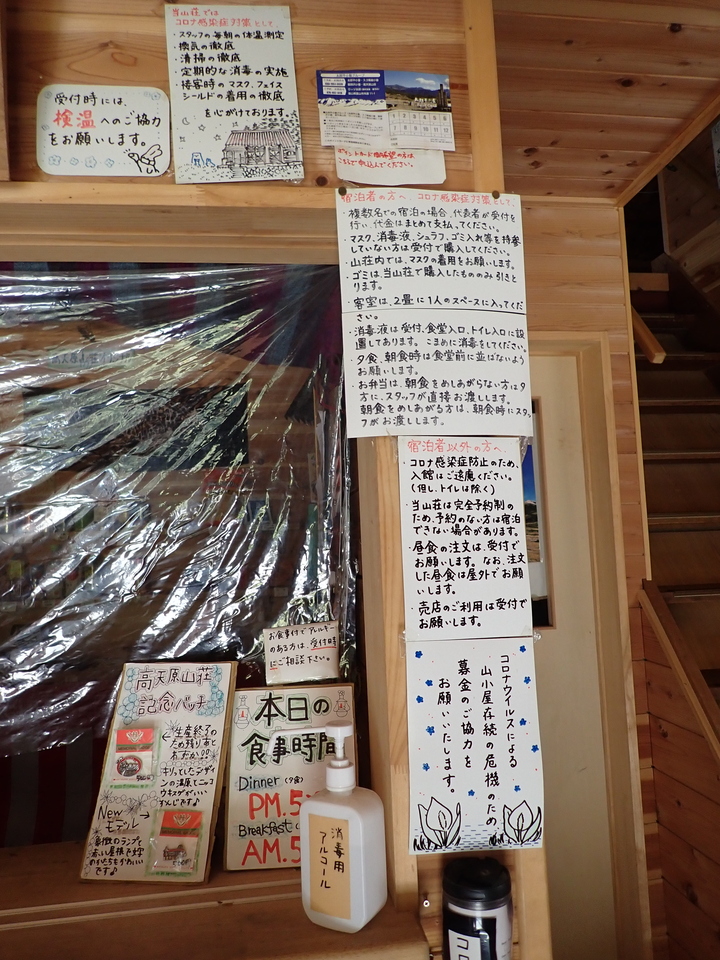 当山荘では
コロナ感染症対策として
・スタッフの毎朝の体温測定
・換気の徹底
・清掃の徹底
・定期的な消毒の実施
・接客時のマスク、フェイス
シールドの着用の徹底
を心がけております。
受付時には、
検温へのご協力
をお願いします。
宿泊者の方へ、コロナ感染症対策として、
・複数名での宿泊の場合、代表者が受付を
行い、代金はまとめて支払ってください。
・マスク、消毒液、シュラフ、ゴミ入れ等を持参
していない方は受付で購入してください。
・山荘内では、マスクの着用をお願いします。
・ゴミは当山荘で購入したもののみ引きと
ります。
・客室は、2畳に1人のスペースに入ってくだ
さい。
・消毒液は受付、食堂入口、トイレ入口に設
置してあります。こまめに消毒をしてください。
・夕食、朝食時は食堂前に並ばないよう
お願いします。
・お弁当は、朝食をめしあがらない方は夕
方に、スタッフが直接お渡しします。
朝食をめしあがる方は、朝食時にスタッ
フがお渡しします。
宿泊者以外の方へ、
・コロナ感染症防止のため、
入館はご遠慮ください。
(但し、トイレは除く)
・当山荘は完全予約制の
ため、予約のない方は宿泊
できない場合があります。
・昼食の注文は、受付で
お願いします。なお、注文
した昼食は屋外でお願
いします。
・売店のご利用は受付で
お願いします。
お食事付でアレルギー
のある方は、受付時
にご相談下さい。
コロナウイルスによる
山小屋存続の危機のため
募金のご協力を
お願いいたします。
高天原山荘
記念バッチ
←生産終了の
ため残りあと
わずか!!
New
モデル→
本日の
食事時間
Dinner (夕食)
PM.5
Breakfast
AM.5
消毒用
アルコール
コロ